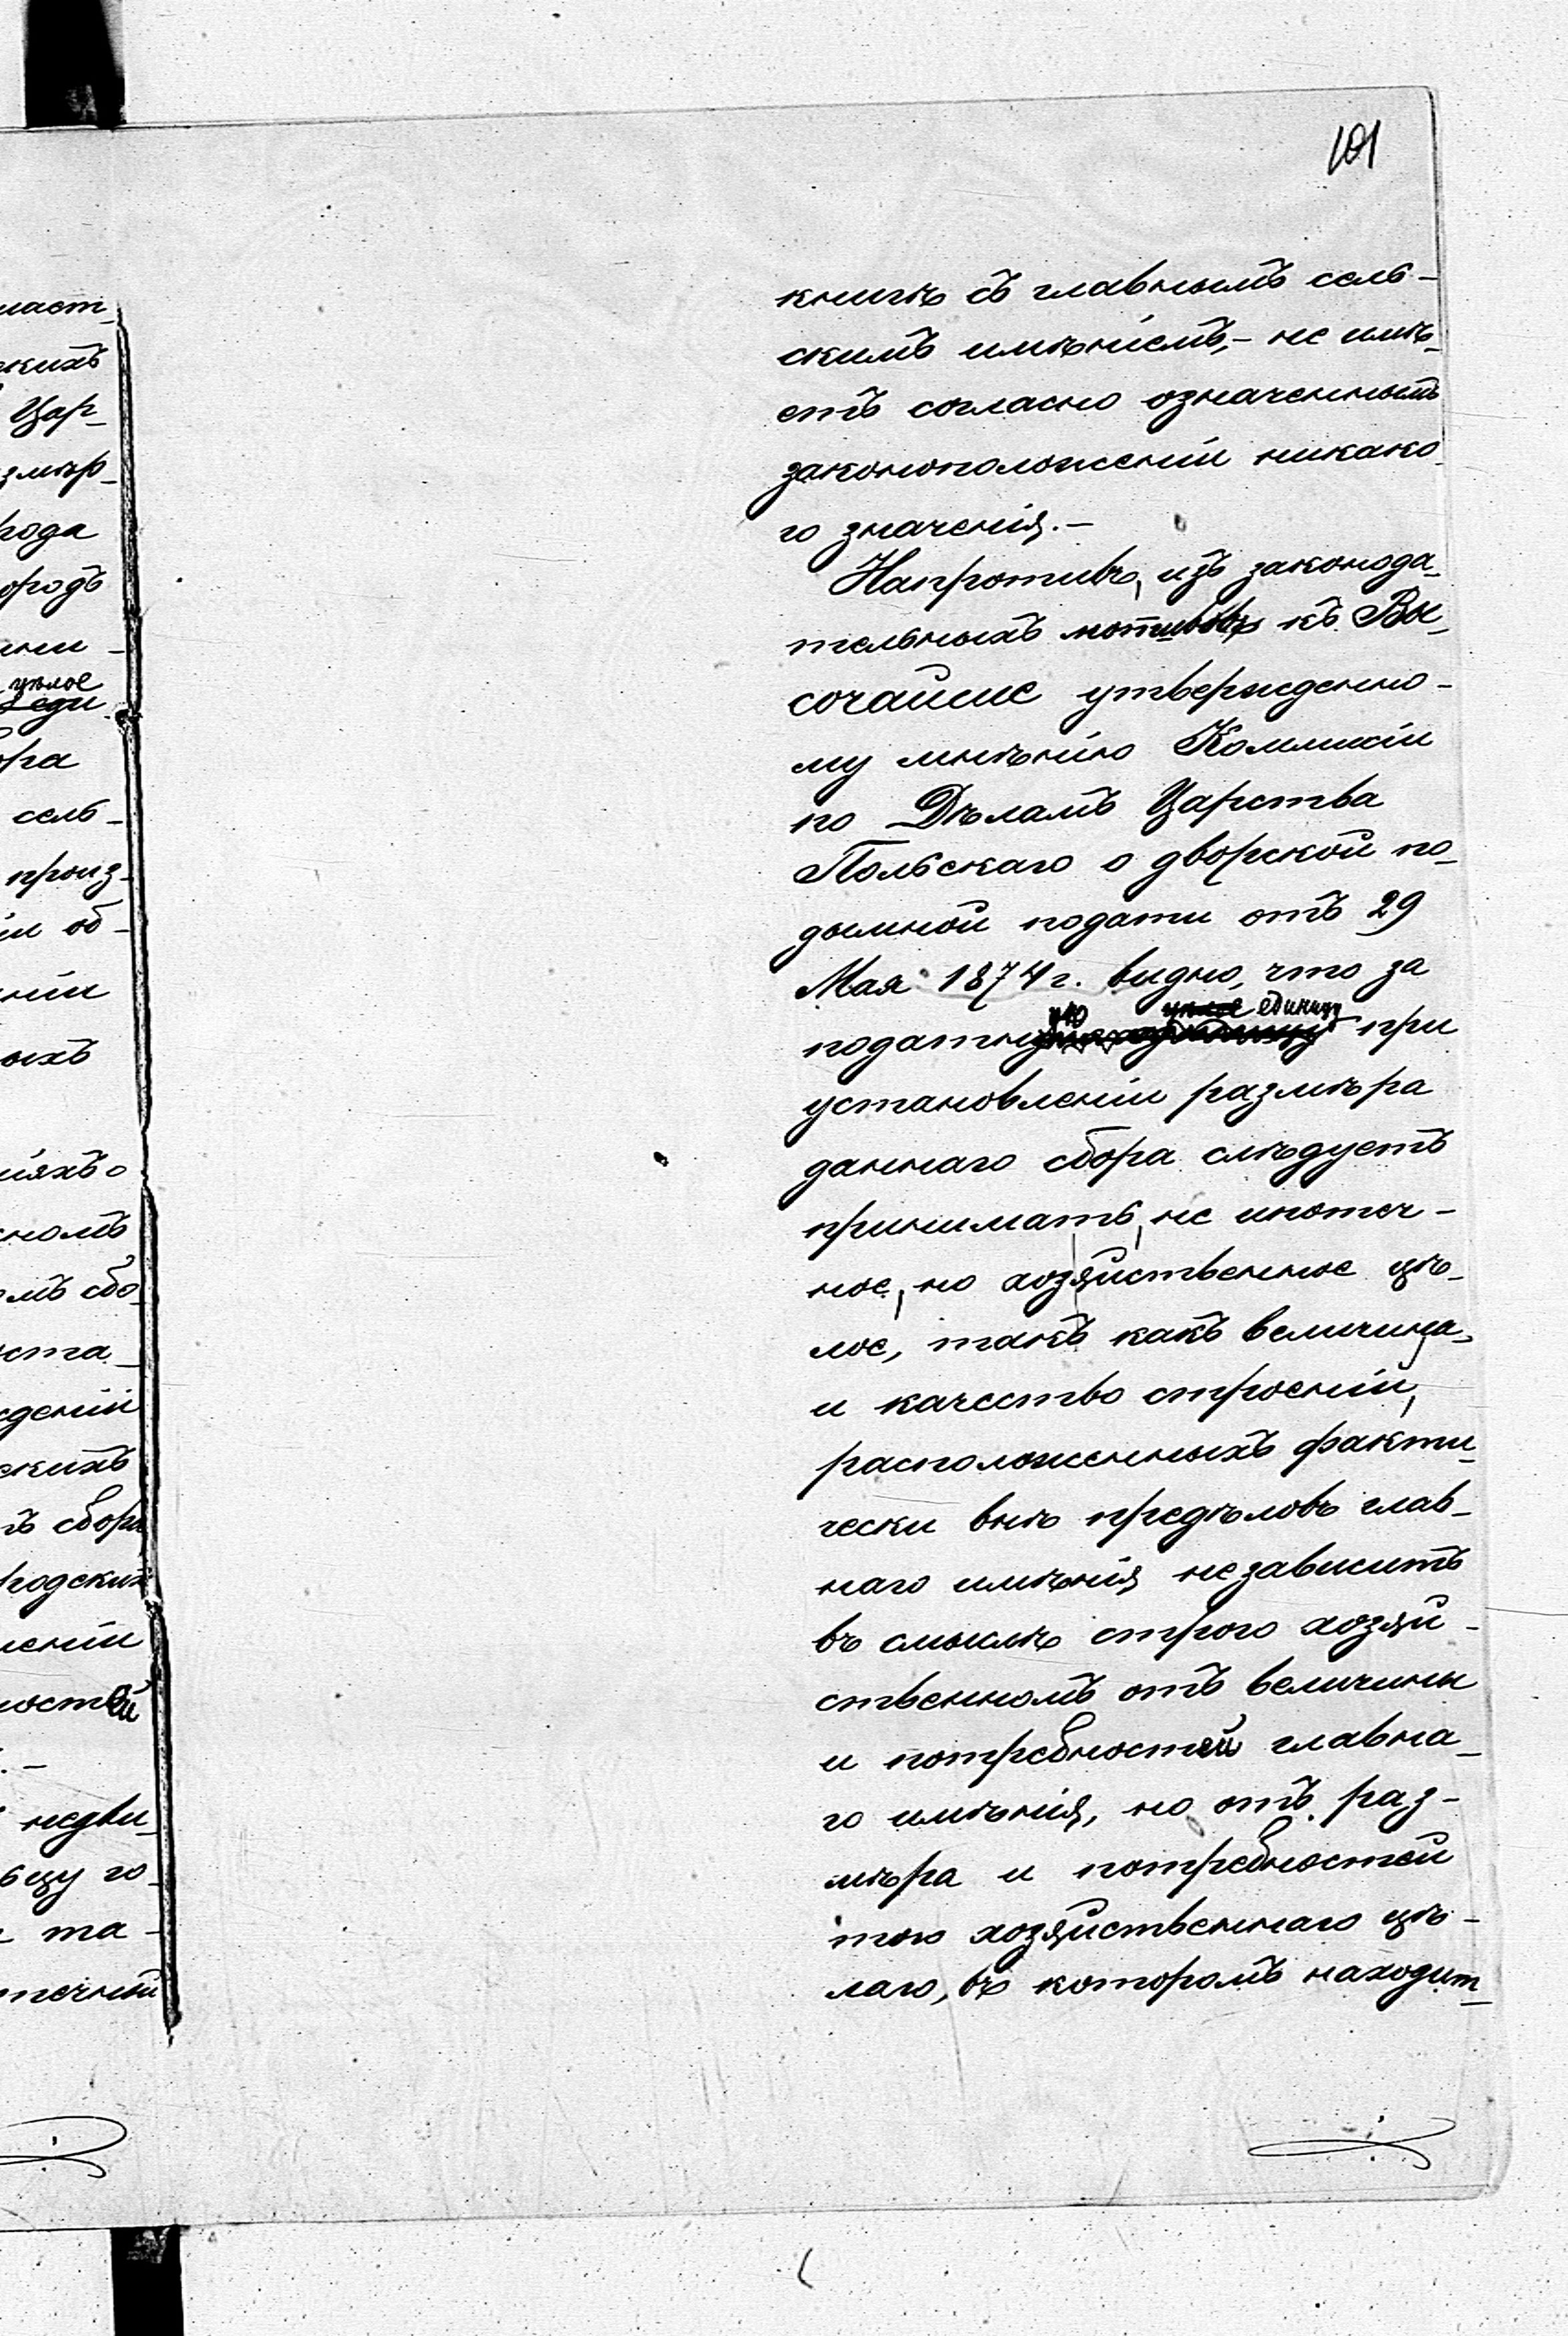 101
книгѣ съ главнымъ сель-
скимъ имѣніемъ,- не имѣ-
етъ согласно означеннымъ
законоположеній никако
го значенія.-
Напротивъ, изъ законода-
тельныхъ мотивовъ къ Вы-
сочайше утвержденно-
му мнѣнію Коммисіи
по Дѣламъ Царства
Польскаго о дворской по-
дымной подати отъ 29
Мая 1874 г. видно, что за
ую цѣлое единицу
податн при
установленіи размѣра
даннаго сбора слѣдуетъ
принимать, не ипотеч-
ное, но хозяйственное цѣ-
лое, такъ какъ величина,
и качество строеній,
расположенныхъ факти-
чески внѣ предѣловъ глав-
наго имѣнія независитъ
въ смыслѣ строго хозяй-
ственномъ отъ величины
и потребностей главна-
го имѣнія, но отъ раз-
мѣра и потребностей
того хозяйственнаго цѣ-
лаго, въ которомъ находит-
ласт-
скихъ
Цар-
змѣр-
рода
ородъ
цѣлое
еди
ора
сель-
произ-
ій об-
ніи
ыхъ
ияхъ о
номъ
омъ сбо
ста-
деній
скихъ
ъ сбора
родских
леніи
ностей
недви-
ьцу го-
та-
течный